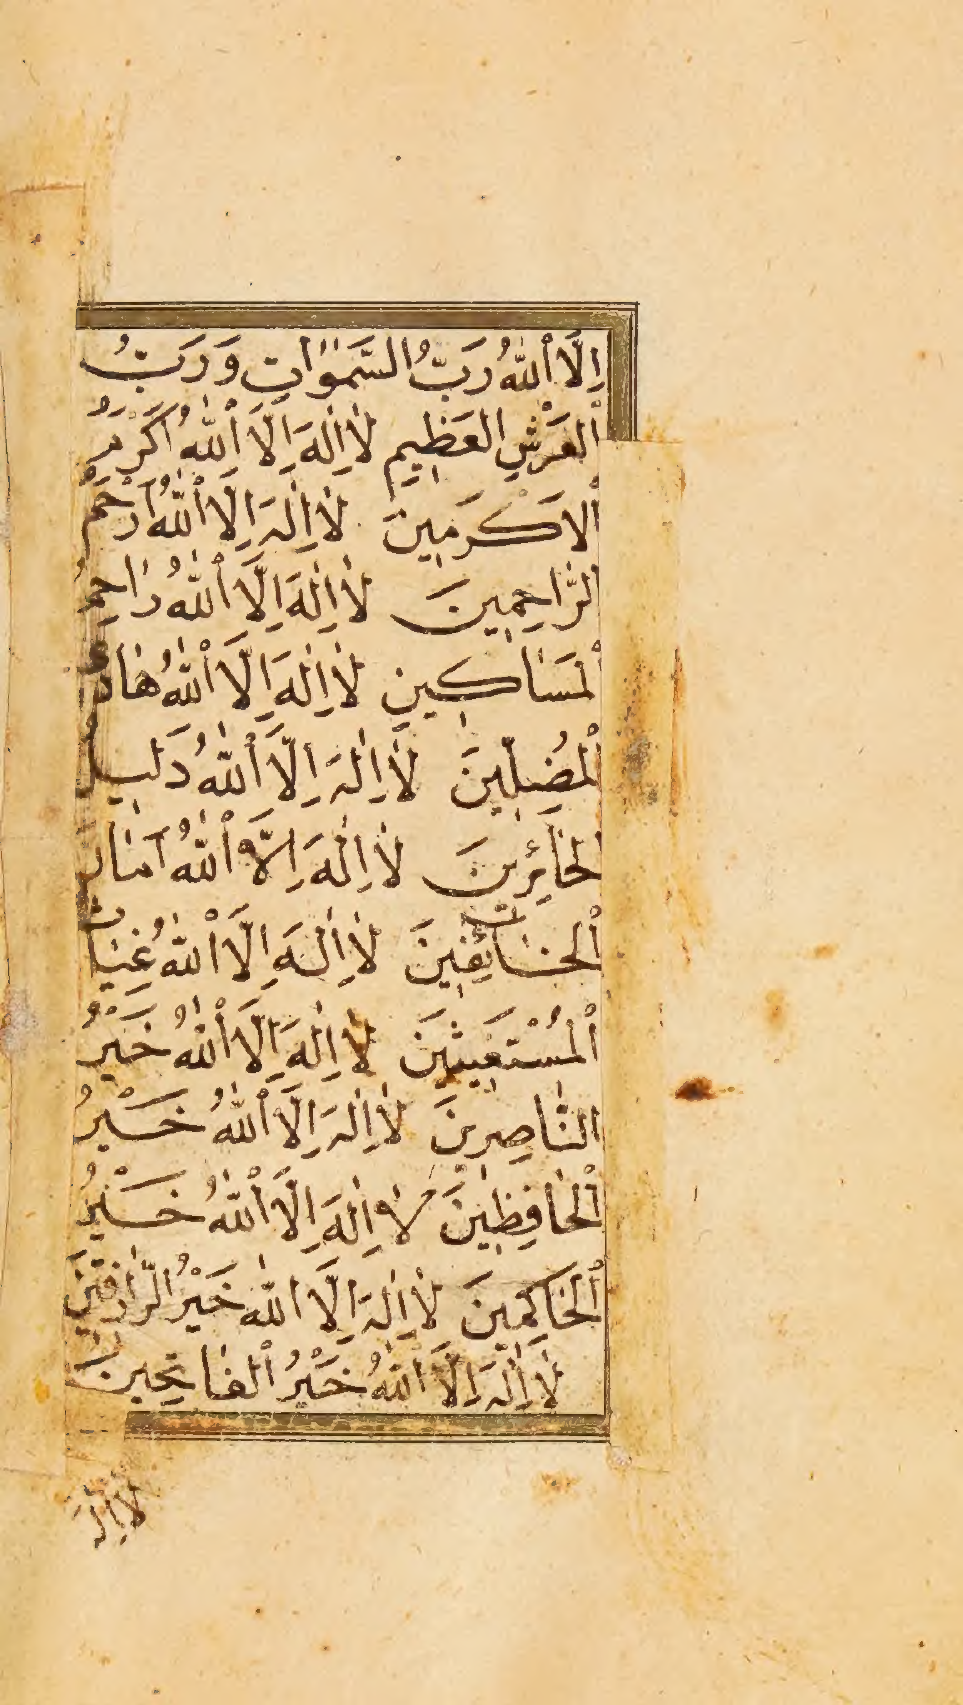 اِلَّا اَللّٰهُ رَبُّ السَّمٰوَاتِ وَرَبُّ
اَلعَرْشِ العَظِيمِ لَا اِلٰهَ اِلَّا اَللّٰهُ اَكْرَمُ
اَلاَكْرَمِينَ لَا اِلٰهَ اِلَّا اَللّٰهُ اَرْحَمُ
اَلرَّاحِمِينَ لَا اِلٰهَ اِلَّا اَللّٰهُ رَاحِمُ
اَلْمَسَاكِينِ لَا اِلٰهَ اِلَّا اَللّٰهُ هَادِى
اَلْمُضِلِّينَ لَا اِلٰهَ اِلَّا اَللّٰهُ دَلِيلُ
الحَائِرِينَ لَا اِلٰهَ اِلَّا اَللّٰهُ اَمَانُ
اَلْخَائِفِينَ لَا اِلٰهَ اِلَّا اَللّٰهُ غِيَاثُ
اَلْمُسْتَغِيثِينَ لَا اِلٰهَ اِلَّا اَللّٰهُ خَيْرُ
النَّاصِرِينَ لَا اِلٰهَ اِلَّا اَللّٰهُ خَيْرُ
اَلْحَافِظِينَ لَا اِلٰهَ اِلَّا اَللّٰهُ خَيْرُ
اَلْحَاكِمِينَ لَا اِلٰهَ اِلَّا اللّٰهُ خَيْرُ الرَّازِقِينَ
لَا اِلٰهَ اِلَّا اَللّٰهُ خَيْرُ اَلْفَاتِحِينَ
لَا اِلٰهَ